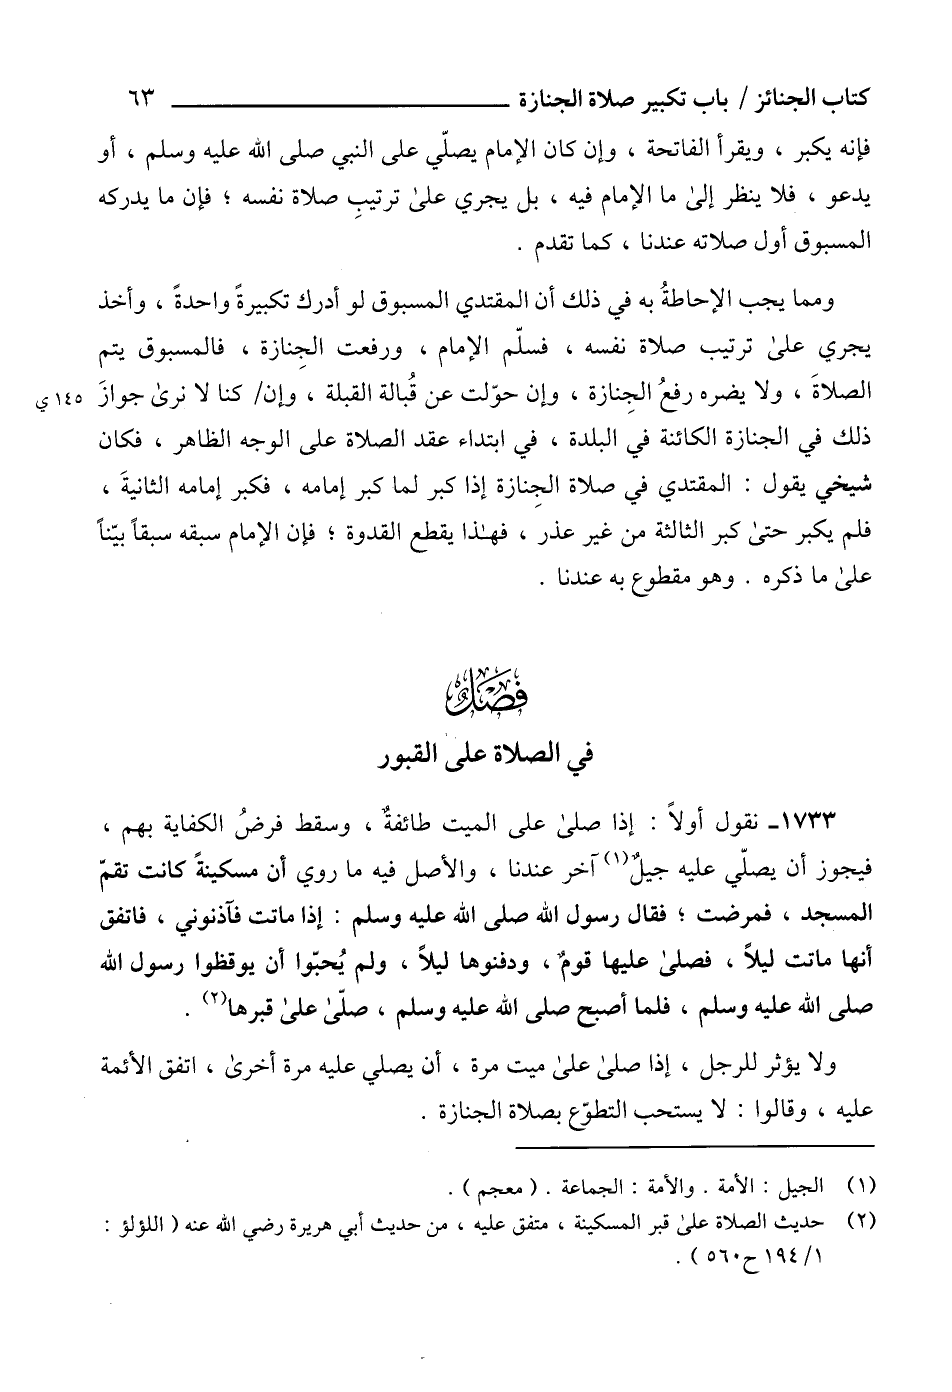 كتاب الجنائز / باب تكبير صلاة الجنازة ــــــــــــــــــــ ٦٣
فإنه يكبر ، ويقرأ الفاتحة ، وإن كان الإمام يصلّي على النبي صلى الله عليه وسلم ، أو
يدعو ، فلا ينظر إلىٰ ما الإمام فيه ، بل يجري علىٰ ترتيبِ صلاة نفسه ؛ فإن ما يدركه
المسبوق أول صلاته عندنا ، كما تقدم .
ومما يجب الإحاطةُ به في ذلك أن المقتدي المسبوق لو أدرك تكبيرةً واحدةً ، وأخذ
يجري علىٰ ترتيب صلاة نفسه ، فسلّم الإمام ، ورفعت الجِنازة ، فالمسبوق يتم
الصلاةَ ، ولا يضره رفعُ الجِنازة ، وإن حوّلت عن قُبالة القبلة ، وإن/ كنا لا نرىٰ جوازَ ١٤٥ ي
ذلك في الجنازة الكائنة في البلدة ، في ابتداء عقد الصلاة على الوجه الظاهر ، فكان
شيخي يقول : المقتدي في صلاة الجِنازة إذا كبر لما كبر إمامه ، فكبر إمامه الثانيةَ ،
فلم يكبر حتىٰ كبر الثالثة من غير عذر ، فهـٰذا يقطع القدوة ؛ فإن الإمام سبقه سبقاً بيّناً
علىٰ ما ذكره . وهو مقطوع به عندنا .
فصل
في الصلاة على القبور
١٧٣٣ـ نقول أولاً : إذا صلىٰ على الميت طائفةٌ ، وسقط فرضُ الكفاية بهم ،
فيجوز أن يصلّي عليه جيلٌ(١) آخر عندنا ، والأصل فيه ما روي أن مسكينةً كانت تقمّ
المسجد ، فمرضت ؛ فقال رسول الله صلى الله عليه وسلم : إذا ماتت فآذنوني ، فاتفق
أنها ماتت ليلاً ، فصلىٰ عليها قومٌ ، ودفنوها ليلاً ، ولم يُحبّوا أن يوقظوا رسول الله
صلى الله عليه وسلم ، فلما أصبح صلى الله عليه وسلم ، صلّىٰ علىٰ قبرها(٢) .
ولا يؤثر للرجل ، إذا صلىٰ علىٰ ميت مرة ، أن يصلي عليه مرة أخرىٰ ، اتفق الأئمة
عليه ، وقالوا : لا يستحب التطوّع بصلاة الجنازة .
(١) الجيل : الأمة . والأمة : الجماعة . ( معجم ) .
(٢) حديث الصلاة علىٰ قبر المسكينة ، متفق عليه ، من حديث أبي هريرة رضي الله عنه ( اللؤلؤ :
١/ ١٩٤ ح ٥٦٠ ) .